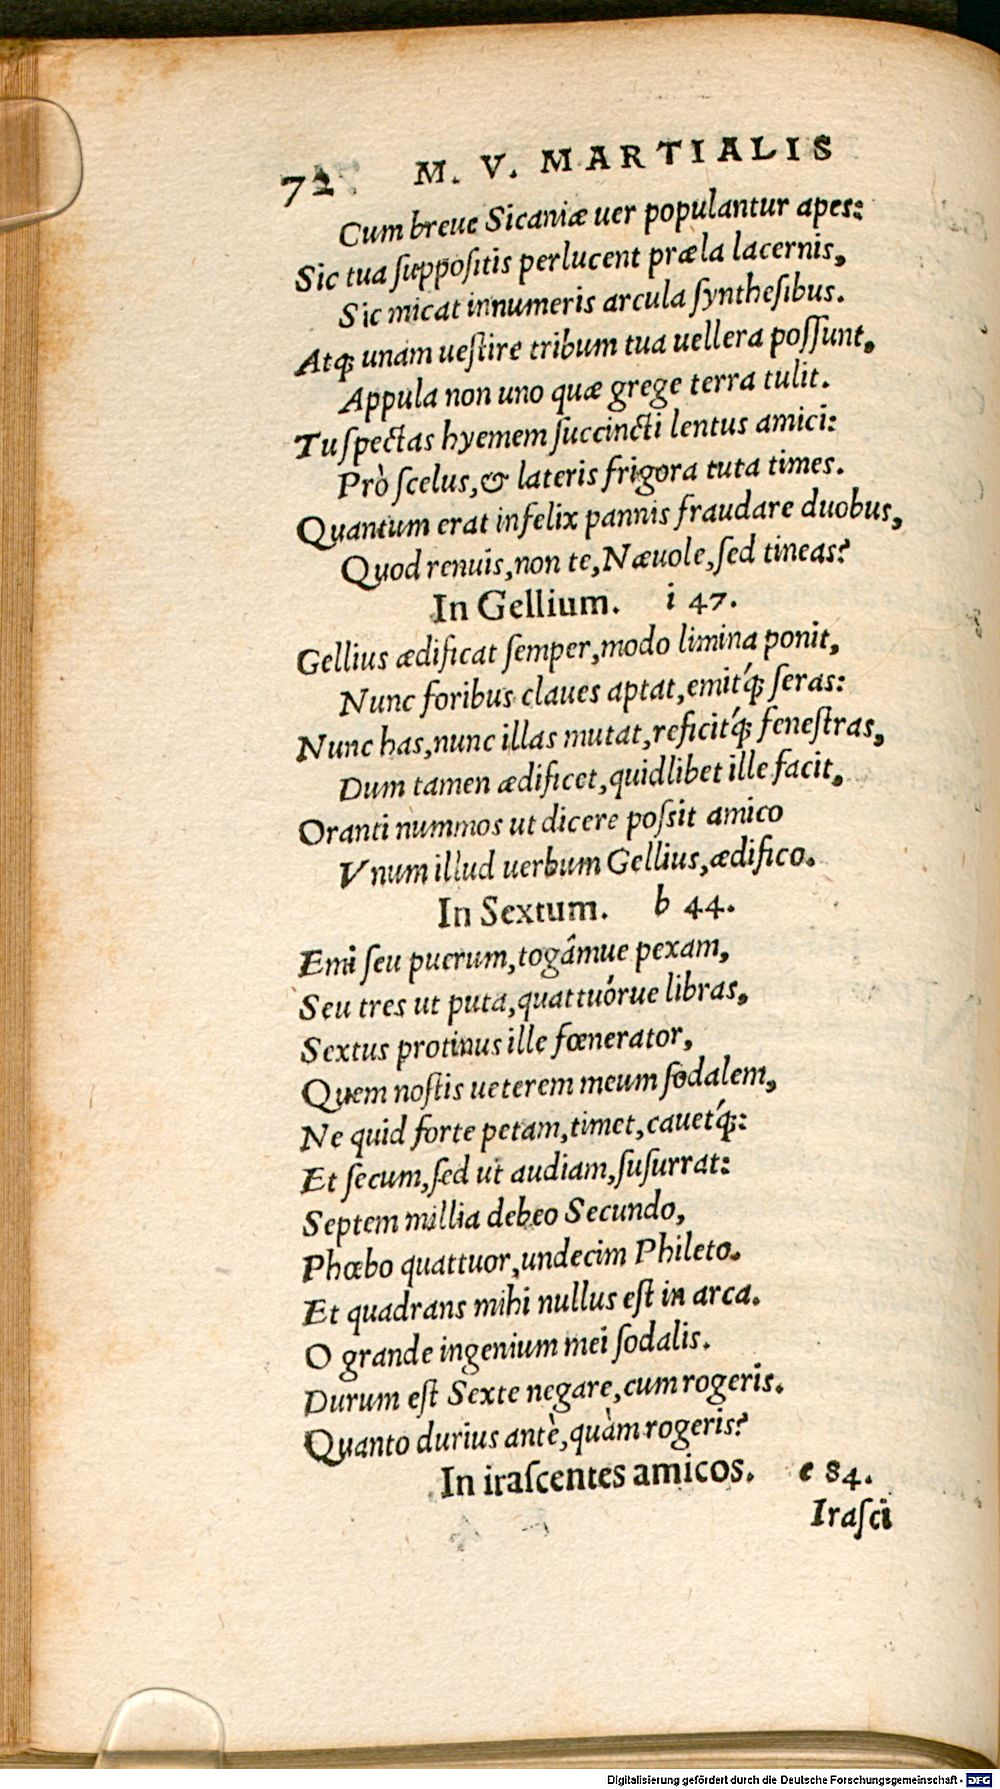 72 M. V. MARTIALIS
Cum breue Sicaniæ uer populantur apes:
Sic tua ſuppoſitis perlucent præla lacernis,
Sic micat innumeris arcula ſyntheſibus.
Atq; unam ueſtire tribum tua uellera poſſunt,
Appula non uno quæ grege terra tulit.
Tu ſpectas hyemem ſuccincti lentus amici:
Prò ſcelus, & lateris frigora tuta times.
Quantum erat infelix pannis fraudare duobus,
Quod renuis, non te, Næuole, ſed tineas?
In Gellium. i 47.
Gellius ædificat ſemper, modo limina ponit,
Nunc foribus claues aptat, emitq́; ſeras:
Nunc has, nunc illas mutat, reficitq́; feneſtras,
Dum tamen ædificet, quidlibet ille facit,
Oranti nummos ut dicere poſsit amico
Vnum illud uerbum Gellius, ædifico.
In Sextum. b 44.
Emi ſeu puerum, togâmue pexam,
Seu tres ut puta, quattuórue libras,
Sextus protinus ille fœnerator,
Quem noſtis ueterem meum ſodalem,
Ne quid forte petam, timet, cauetq́;:
Et ſecum, ſed ut audiam, ſuſurrat:
Septem millia debeo Secundo,
Phœbo quattuor, undecim Phileto.
Et quadrans mihi nullus eſt in arca.
O grande ingenium mei ſodalis.
Durum eſt Sexte negare, cum rogeris.
Quanto durius antè, quàm rogeris?
In iraſcentes amicos. e 84.
Iraſci
Digitalisierung gefördert durch die Deutsche Forschungsgemeinschaft - DFG